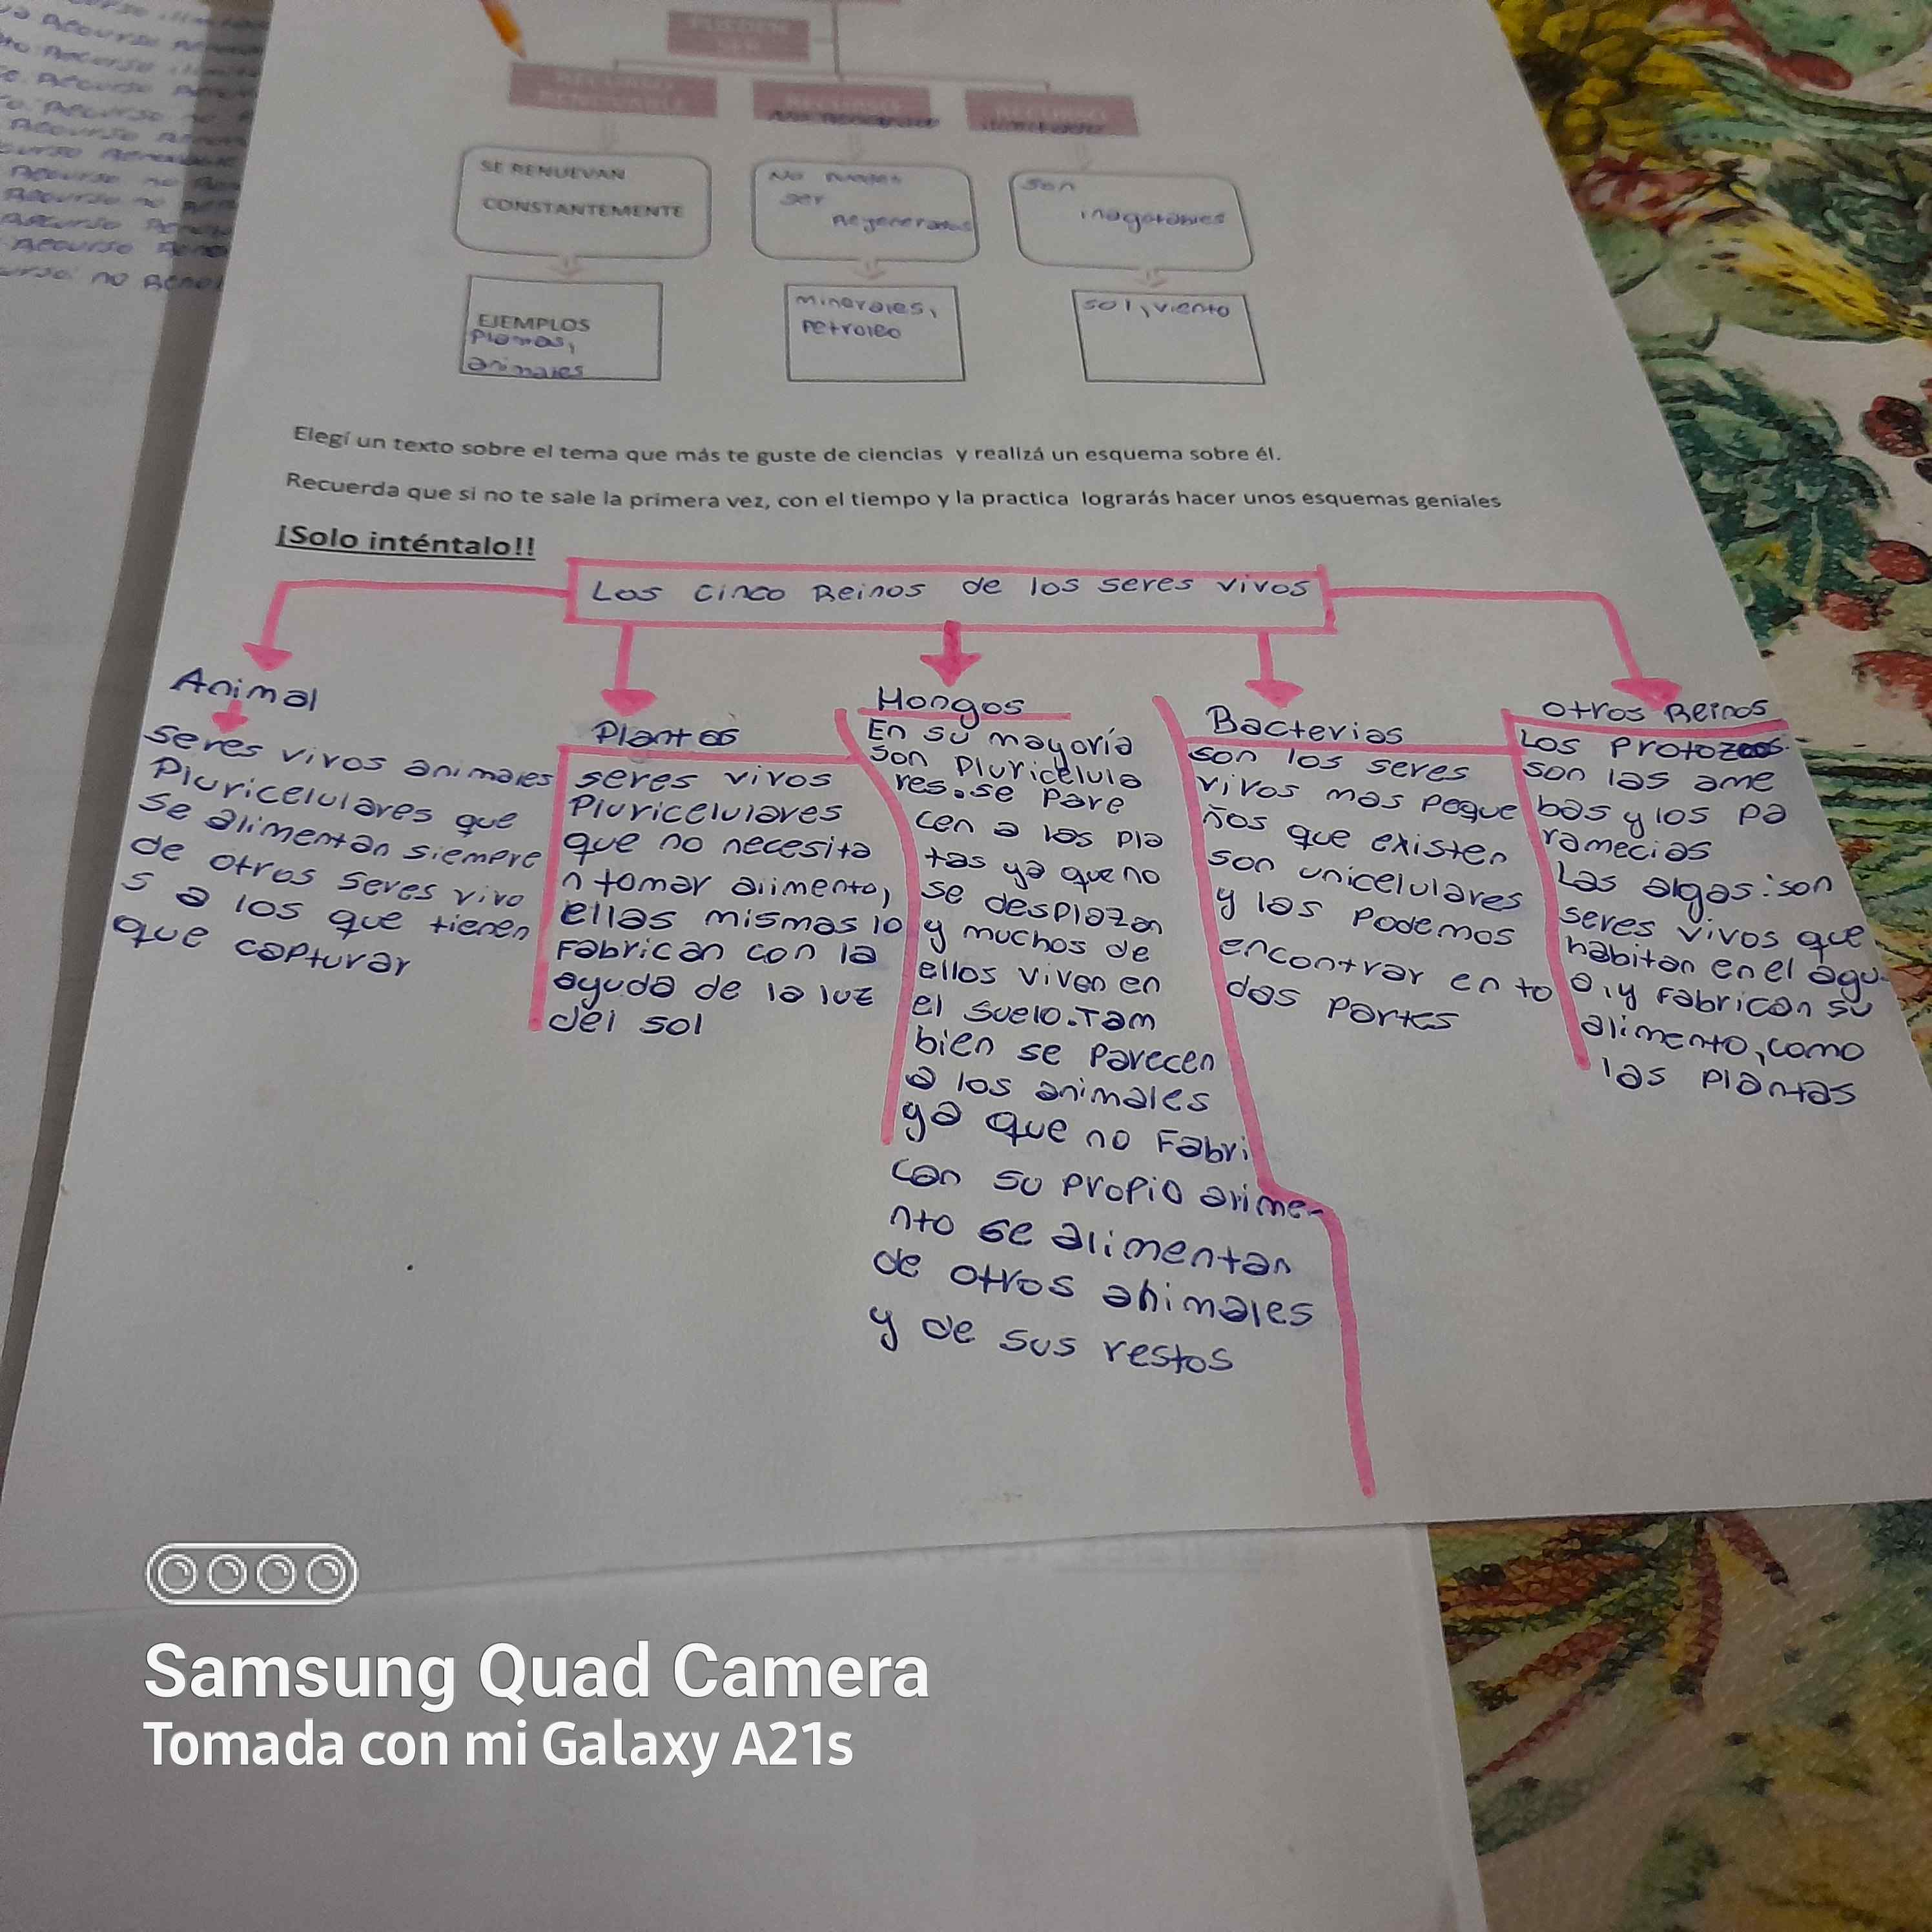 PUEDEN
SER
RECURSO
RENOVABLE
RECURSO
No Renovable
RECURSO
ilimitado
SE RENUEVAN
CONSTANTEMENTE
No pueden
ser
Regenerados
Son
inagotables
EJEMPLOS
Plantas,
animales
minerales,
Petroleo
sol, viento
Elegí un texto sobre el tema que más te guste de ciencias y realizá un esquema sobre él.
Recuerda que si no te sale la primera vez, con el tiempo y la practica lograrás hacer unos esquemas geniales
¡Solo inténtalo!!
Los cinco Reinos de los seres vivos
Animal
seres vivos animales
Pluricelulares que
se alimentan siempre
de otros seres vivo
s a los que tienen
que capturar
Plantas
seres vivos
Pluricelulares
que no necesita
n tomar alimento,
ellas mismas lo
Fabrican con la
ayuda de la luz
del sol
Hongos
En su mayoría
son Pluricelula
res. se Pare
cen a las pla
tas ya que no
se desplazan
y muchos de
ellos viven en
el suelo. Tam
bien se parecen
a los animales
ya que no Fabri
can su propio alime-
nto se alimentan
de otros animales
y de sus restos
Bacterias
son los seres
vivos mas peque
ños que existen
son unicelulares
y las podemos
encontrar en to
das partes
otros Reinos
Los Protozoos
son las ame
bas y los pa
ramecias
Las algas: son
seres vivos que
habitan en el agu-
a, y fabrican su
alimento, como
las plantas
Samsung Quad Camera
Tomada con mi Galaxy A21s